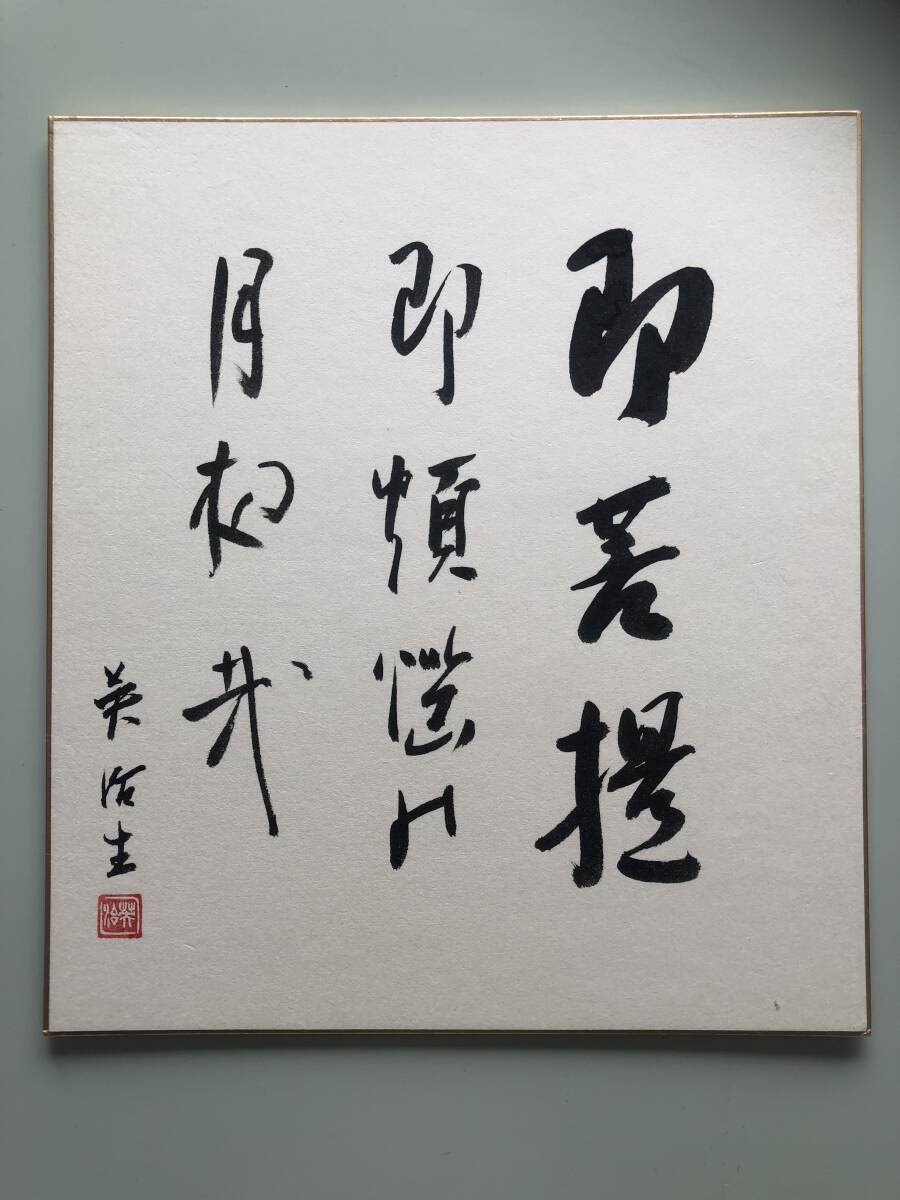 即菩提
即煩惱の
月夜哉
英治生
英治